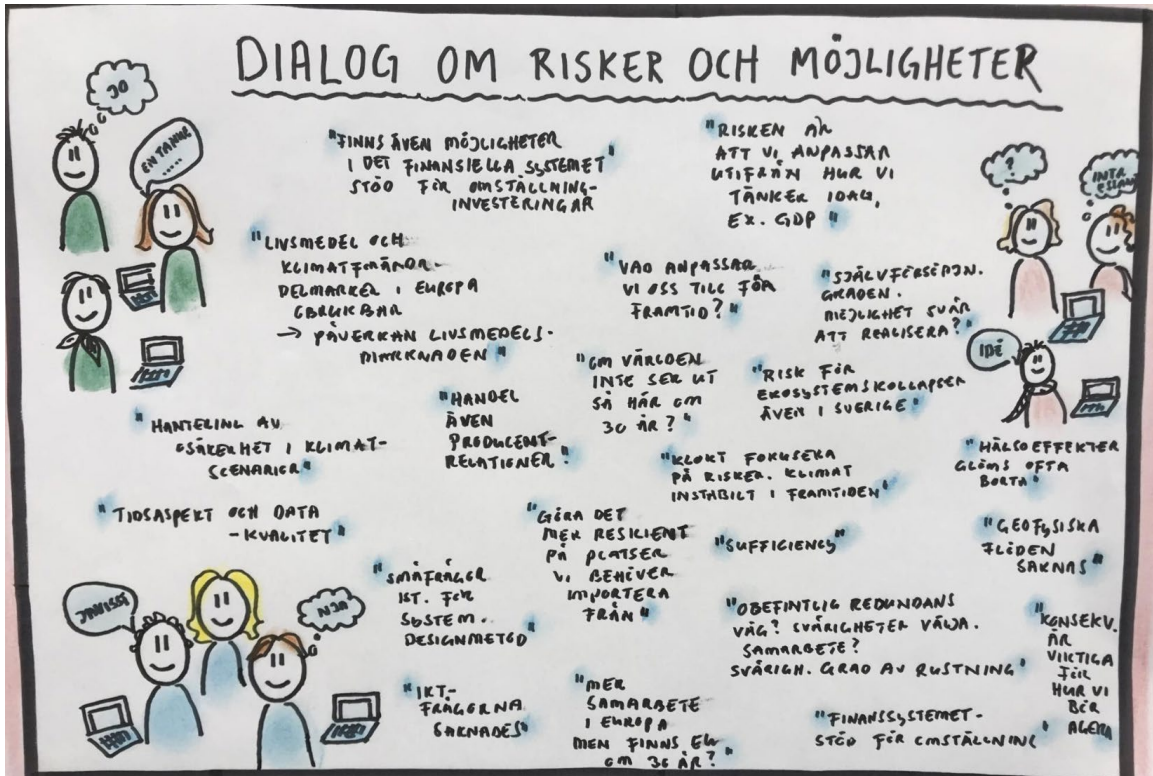 DIALOG OM RISKER OCH MÖJLIGHETER
JO
EN TANKE
.....
"FINNS ÄVEN MÖJLIGHETER
I DET FINANSIELLA SYSTEMET"
STÖD FÖR OMSTÄLLNING-
INVESTERINGAR
"RISKEN ÄR
ATT VI ANPASSAR
UTIFRÅN HUR VI
TÄNKER IDAG,
EX. GDP"
?
INTR
ESSANT
"LIVSMEDEL OCH
KLIMATFÖRÄNDR.
DELMARKEL I EUROPA
OBRUKBAR
→ PÅVERKAN LIVSMEDELS-
MARKNADEN"
"VAD ANPASSAR
VI OSS TILL FÖR
FRAMTID?"
"SJÄLVFÖRSÖRJN.
GRADEN.
MÖJLIGHET SVÅR
ATT REALISERA?"
IDÉ
"OM VÄRLDEN
INTE SER UT
SÅ HÄR OM
30 ÅR?"
"RISK FÖR
EKOSYSTEMSKOLLAPSER
ÄVEN I SVERIGE"
"HANTERING AV
OSÄKERHET I KLIMAT-
SCENARIER"
"HANDEL
ÄVEN
PRODUCENT-
RELATIONER."
"KLOKT FOKUSERA
PÅ RISKER. KLIMAT
INSTABILT I FRAMTIDEN"
"HÄLSOEFFEKTER
GLÖMS OFTA
BORTA"
"TIDSASPEKT OCH DATA
-KVALITET"
"GÖRA DET
MER RESILIENT
PÅ PLATSER
VI BEHÖVER
IMPORTERA
FRÅN"
"SUFFICIENCY"
"GEOFYSISKA
FLÖDEN
SAKNAS"
JAVISST
NJA
"SMÅFRÅGER
IST. FÖR
SYSTEM.
DESIGNMETOD"
"OBEFINTLIG REDUNDANS
VÄG? SVÅRIGHETER VÄLJA.
SAMARBETE?
SVÅRIGH. GRAD AV RUSTNING"
"KONSEKV.
ÄR
VIKTIGA
FÖR
HUR VI
BÖR
AGERA"
"IKT-
FRÅGORNA
SAKNADES"
"MER
SAMARBETE
I EUROPA
MEN FINNS EU
OM 30 ÅR?"
"FINANSSYSTEMET-
STÖD FÖR OMSTÄLLNING"